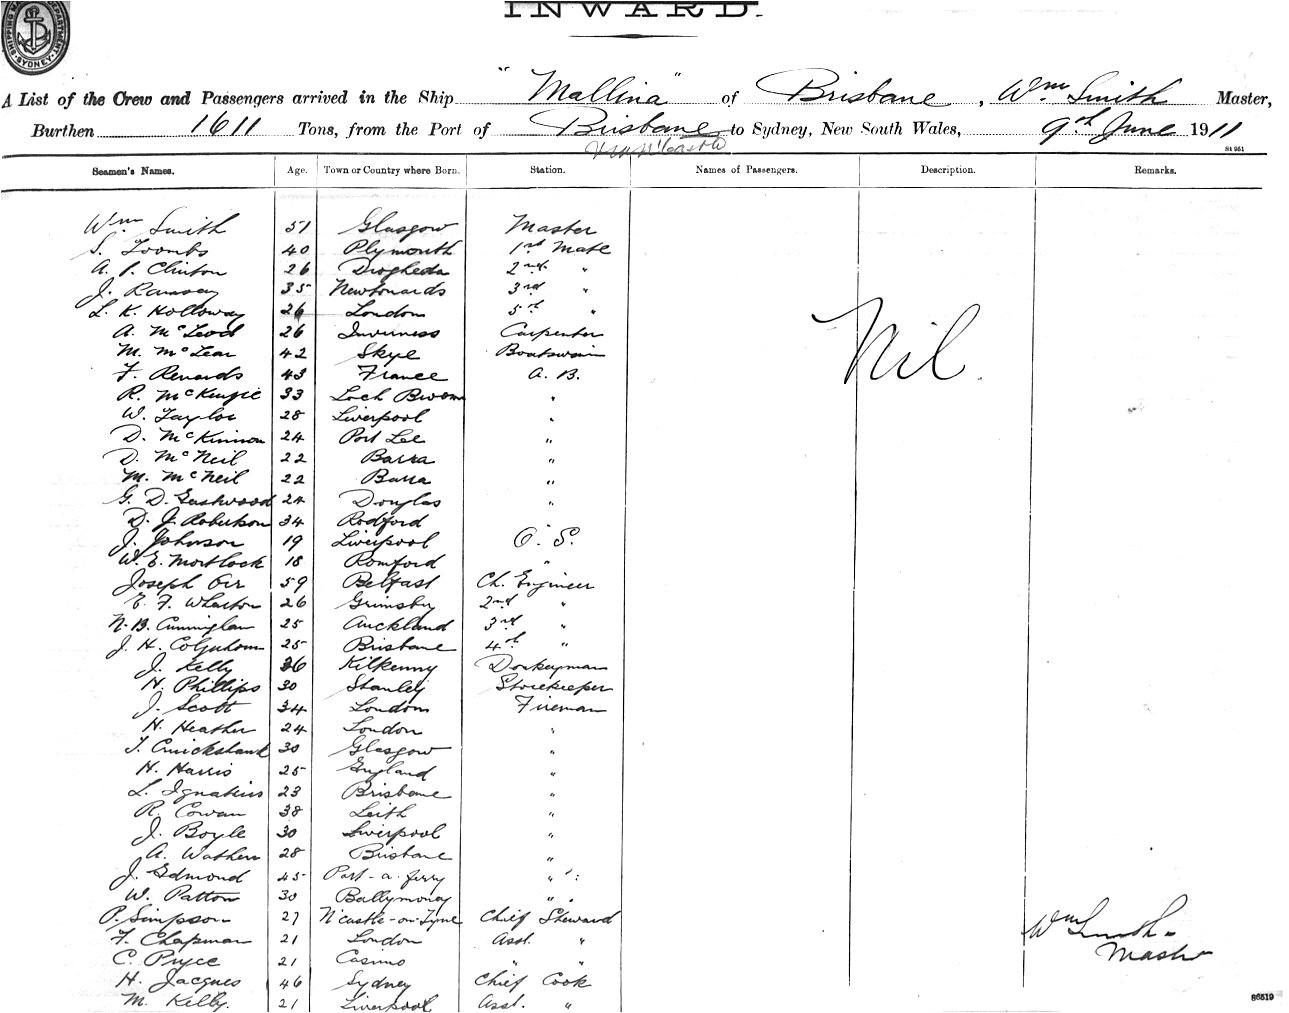 INWARD.
SHIPPING MASTER'S DEPARTMENT. SYDNEY.
A List of the Crew and Passengers arrived in the Ship "Mallina" of Brisbane, Wm Smith Master,
Burthen 1611 Tons, from the Port of Brisbane to Sydney, New South Wales, 9th June 1911
St 951
Seamen's Names. Age. Town or Country where Born. Station. Names of Passengers. Description. Remarks.
Wm Smith 51 Glasgow Master
S. Toombs 40 Plymouth 1st Mate
A. P. Clinton 26 Drogheda 2nd "
J. Ramsay 35 Newtonards 3rd "
L. K. Holloway 26 London 5th "
A. McLeod 26 Inverness Carpenter
M. McLean 42 Skye Boatswain
Nil.
F. Renards 43 France A. B.
R. McKenzie 33 Loch Broom "
W. Taylor 28 Liverpool "
D. McKinnon 24 Port Lee "
D. McNeil 22 Barra "
M. McNeil 22 Barra "
G. D. Eastwood 24 Douglas "
D. J. Robertson 34 Rodford
J. Johnson 19 Liverpool O. S.
W. E. Mortlock 18 Romford "
Joseph Orr 59 Belfast Ch. Engineer
E. F. Wharton 26 Grimsby 2nd "
N. B. Cunninglam 25 Auckland 3rd "
J. H. Colquhoun 25 Brisbane 4th "
J. Kelly 36 Kilkenny Donkeyman
H. Phillips 30 Stanley Storekeeper
J. Scott 34 London Fireman
H. Heather 24 London "
T. Cruickshank 30 Glasgow "
H. Harris 25 England "
L. Ignatius 23 Brisbane "
R. Cowan 38 Leith "
J. Boyle 30 Liverpool "
A. Wathen 28 Brisbane "
J. Edmond 45 Port-a-ferry "
W. Patton 30 Ballymoney "
P. Simpson 27 N'castle-on-Tyne Chief Steward
F. Chapman 21 London Asst. "
C. Pryce 21 Casino " "
Wm Smith
Master
H. Jacques 46 Sydney Chief Cook
M. Kelly. 21 Liverpool Asst. "
86519